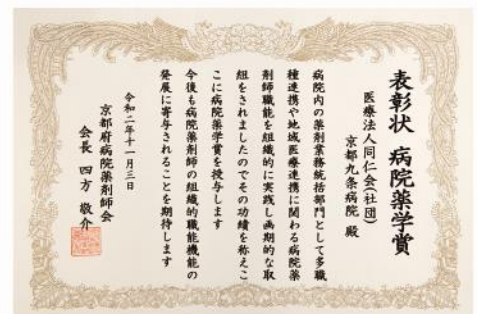 表彰状 病院薬学賞
医療法人同仁会(社団)
京都九条病院 殿
病院内の薬剤業務統括部門として多職
種連携や地域医療連携に関わる病院薬
剤師職能を組織的に実践し画期的な取
組をされましたのでその功績を称えこ
こに病院薬学賞を授与します
今後も病院薬剤師の組織的職能機能の
発展に寄与されることを期待します
令和二年十一月三日
京都府病院薬剤師会
会長 四方 敬介